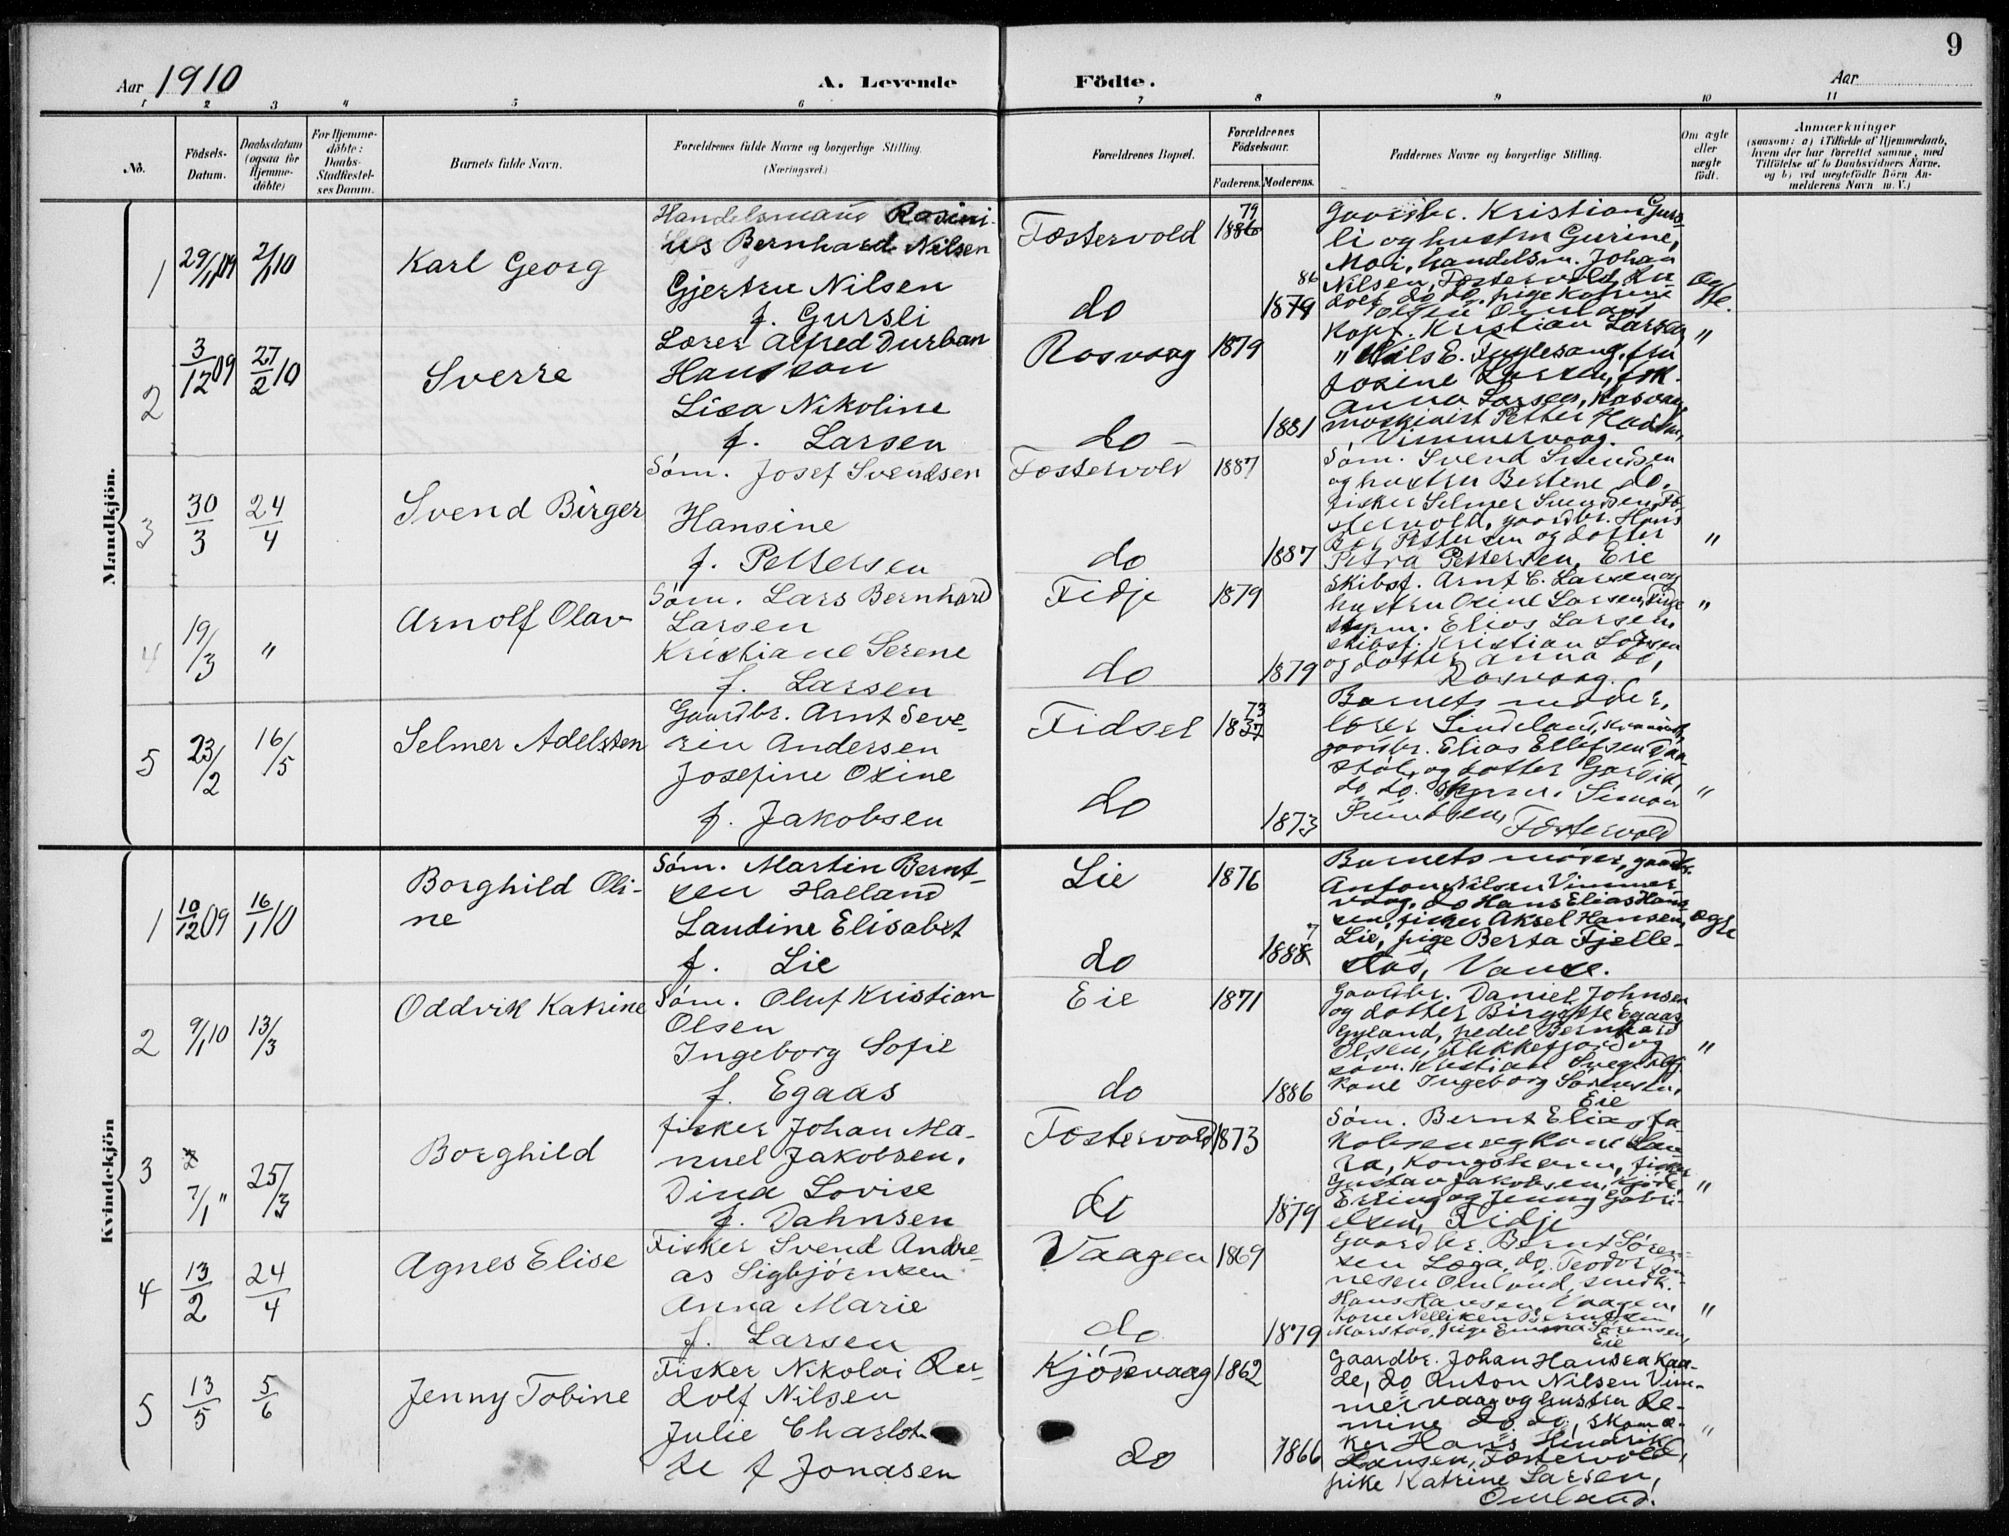 9
Aar 1910
A. Levende
Födte.
Aar
1 2 3 4 5 6 7 8 9 10 11
No.
Födsels-
Datum.
Daabsdatum
(ogsaa for
Hjemme-
döbte)
For Hjemme-
döbte:
Daabs-
Stadfæstel-
ses Datum.
Barnets fulde Navn.
Forældrenes fulde Navne og borgerlige Stilling.
(Næringsvei.)
Forældrenes Bopæl.
Forældrenes
Födselsaar.
Faderens. Moderens.
Faddernes Navne og borgerlige Stilling.
Om ægte
eller
uægte
födt.
Anmærkninger
(saasom: a) i Tilfælde af Hjemmedaab,
hvem der har forrettet samme, med
Tilföielse af to Daabsvidners Navne.
og b) ved uægtefödte Börn An-
melderens Navn m. V.)
Mandkjön.
1 29/11 09 2/1 10 Karl Georg
Handelsmand Rasini-
us Bernhard Nilsen
Gjertru Nilsen
f. Gursli
Fostervold 1886 79
do 1879 86
Gaardbr. Kristian Gurs-
li og hustru Gurine,
Moi, handelsm. Johan
Nilsen, Fostervold, Ru-
dolf do do, pige Katrine
Omland
Æg-
te.
2 3/12 09 27/2 10 Sverre
Lærer Alfred Durban
Hansson
Lisa Nikoline
f. Larsen
Rosvaag 1879
do 1881
Kapt. Kristian Larsen
" Nils E. Fuglesang, fru
Josine Larsen, frk.
Anna Larsen, Rosvaag
maskinist Petter
Vimmervaag.
"
3 30/3 24/4 Svend Birger
Söm. Josef Svendsen
Hansine
f. Pettersen
Fostervold 1887
do 1887
Söm. Svend Svendsen
og hustru Bertine do.
fisker Selmer Svendsen, Fo-
stervold, gaardbr. Hans
Pettersen og dotter
Petra Pettersen, Eie
"
4 19/3 " Arnolf Olav
Söm. Lars Bernhard
Larsen
Kristiane Serene
f. Larsen
Fidje 1879
do 1879
Skibsf. Arnt C. Larsen og
hustru Oxine Larsen, Fidje
styrm. Elias Larsen,
skibsf. Kristian Larsen
og dotter Anna do,
Rosvaag.
"
5 23/2 16/5 Selmer Adelsten
Gaardbr. Arnt Seve-
rin Andersen
Josefine Oxine
f. Jakobsen
Fidsel 1837 73
do 1873
Barnets moder,
lærer Lindeland,
gaardbr. Elias Ellefsen
støl, og dotter
do do. styrm. Simon
Svendsen,
Fostervold
"
Kvindekjön
1 10/12 09 16/1 10 Borghild Oli-
ne
Söm. Martin Bernt-
sen Halland
Laudine Elisabet
f. Lie
Lie 1876
do 1888 7
Barnets moder, gaardbr.
Anton Nilsen Vimmer
vaag, do Hans Elias Han-
sen, fisker Aksel Hansen,
Lie, pige Berta Fjelle-
stad, Vanse.
ægte
2 9/1 10 13/3 Oddvik Katrine
Söm. Oluf Kristian
Olsen
Ingeborg Sofie
f. Egaas
Eie 1871
do 1886
Gaardbr. Daniel Johnsen
og dotter Birgitte Egaas,
Gyland, pedel Bernhard
Olsen, Flekkefjord og
söm. Kristian
kone Ingeborg Sörensen,
Eie
"
3 7/1 " 25/3 Borghild
fisker Johan Ma-
nuel Jakobsen.
Dina Lovise
f. Dahnsen
Fostervold 1873
do 1879
Söm. Bernt Elias Ja-
kobsen og kone Lau-
ra, Kongshavn, fisker
Gustav Jakobsen,
Erling og Jenny Gabri-
elsen, Fidje
"
4 13/2 24/4 Agnes Elise
Fisker Svend Andre-
as Sigbjörnsen
Anna Marie
f. Larsen
Vaagen 1869
do 1879
Gaardbr. Bernt Sören-
sen Loga, do. Teodor Jon-
nesen Omland,
Hans Hansen, Vaagen,
kone Nelliken Berntsen
pige Emma Sörensen,
Eie
"
5 13/5 5/6 Jenny Tobine
Fisker Nikolai Ru-
dolf Nilsen
Julie Charlot-
te f Jonasen
Kjödevaag 1862
do 1866
Gaardbr. Johan Hansen Kaa-
de, do Anton Nilsen Vim-
mervaag og hustru Re-
mine do do, skoma-
ker Hans Hendrik
Hansen, Fostervold,
pike Katrine Larsen,
Omland.
"